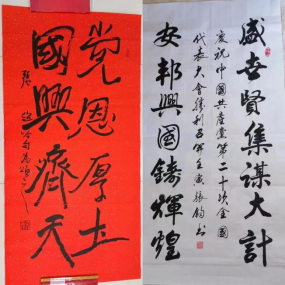 党恩厚土
國興齊天
盛世賢集謀大計
慶祝中國共產黨第二十次全國
代表大會勝利召開壬寅張鈞书
安邦興國鑄輝煌